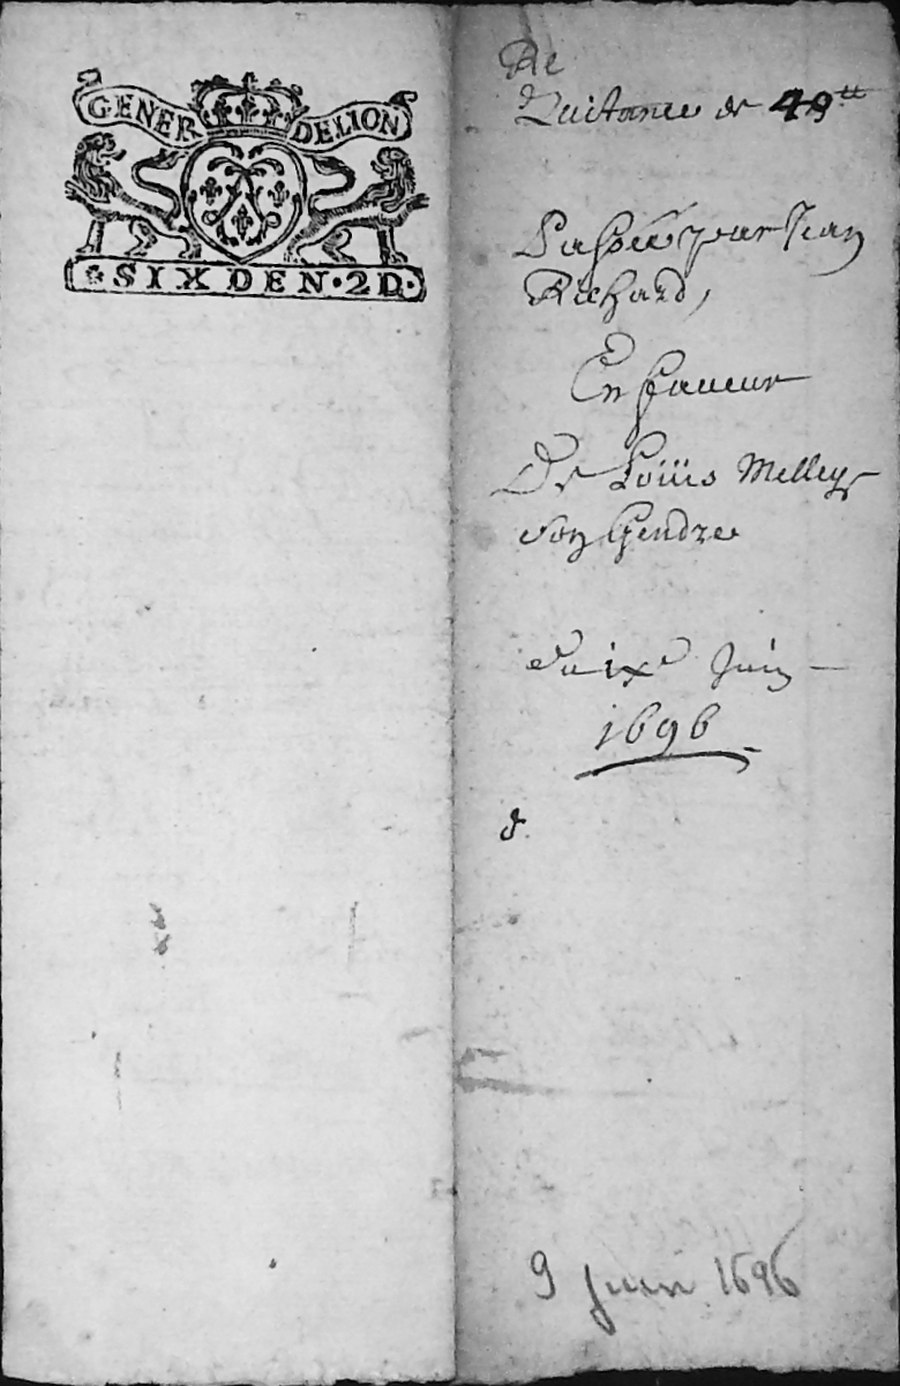 GENER DE LION
SIX DEN · 2 D ·
Re
Quitance de 49tt
Passée par Jean
Richard,
En faveur
De Loüis Melley
son Gendre
Du ixe Juin
1696
9 Juin 1696